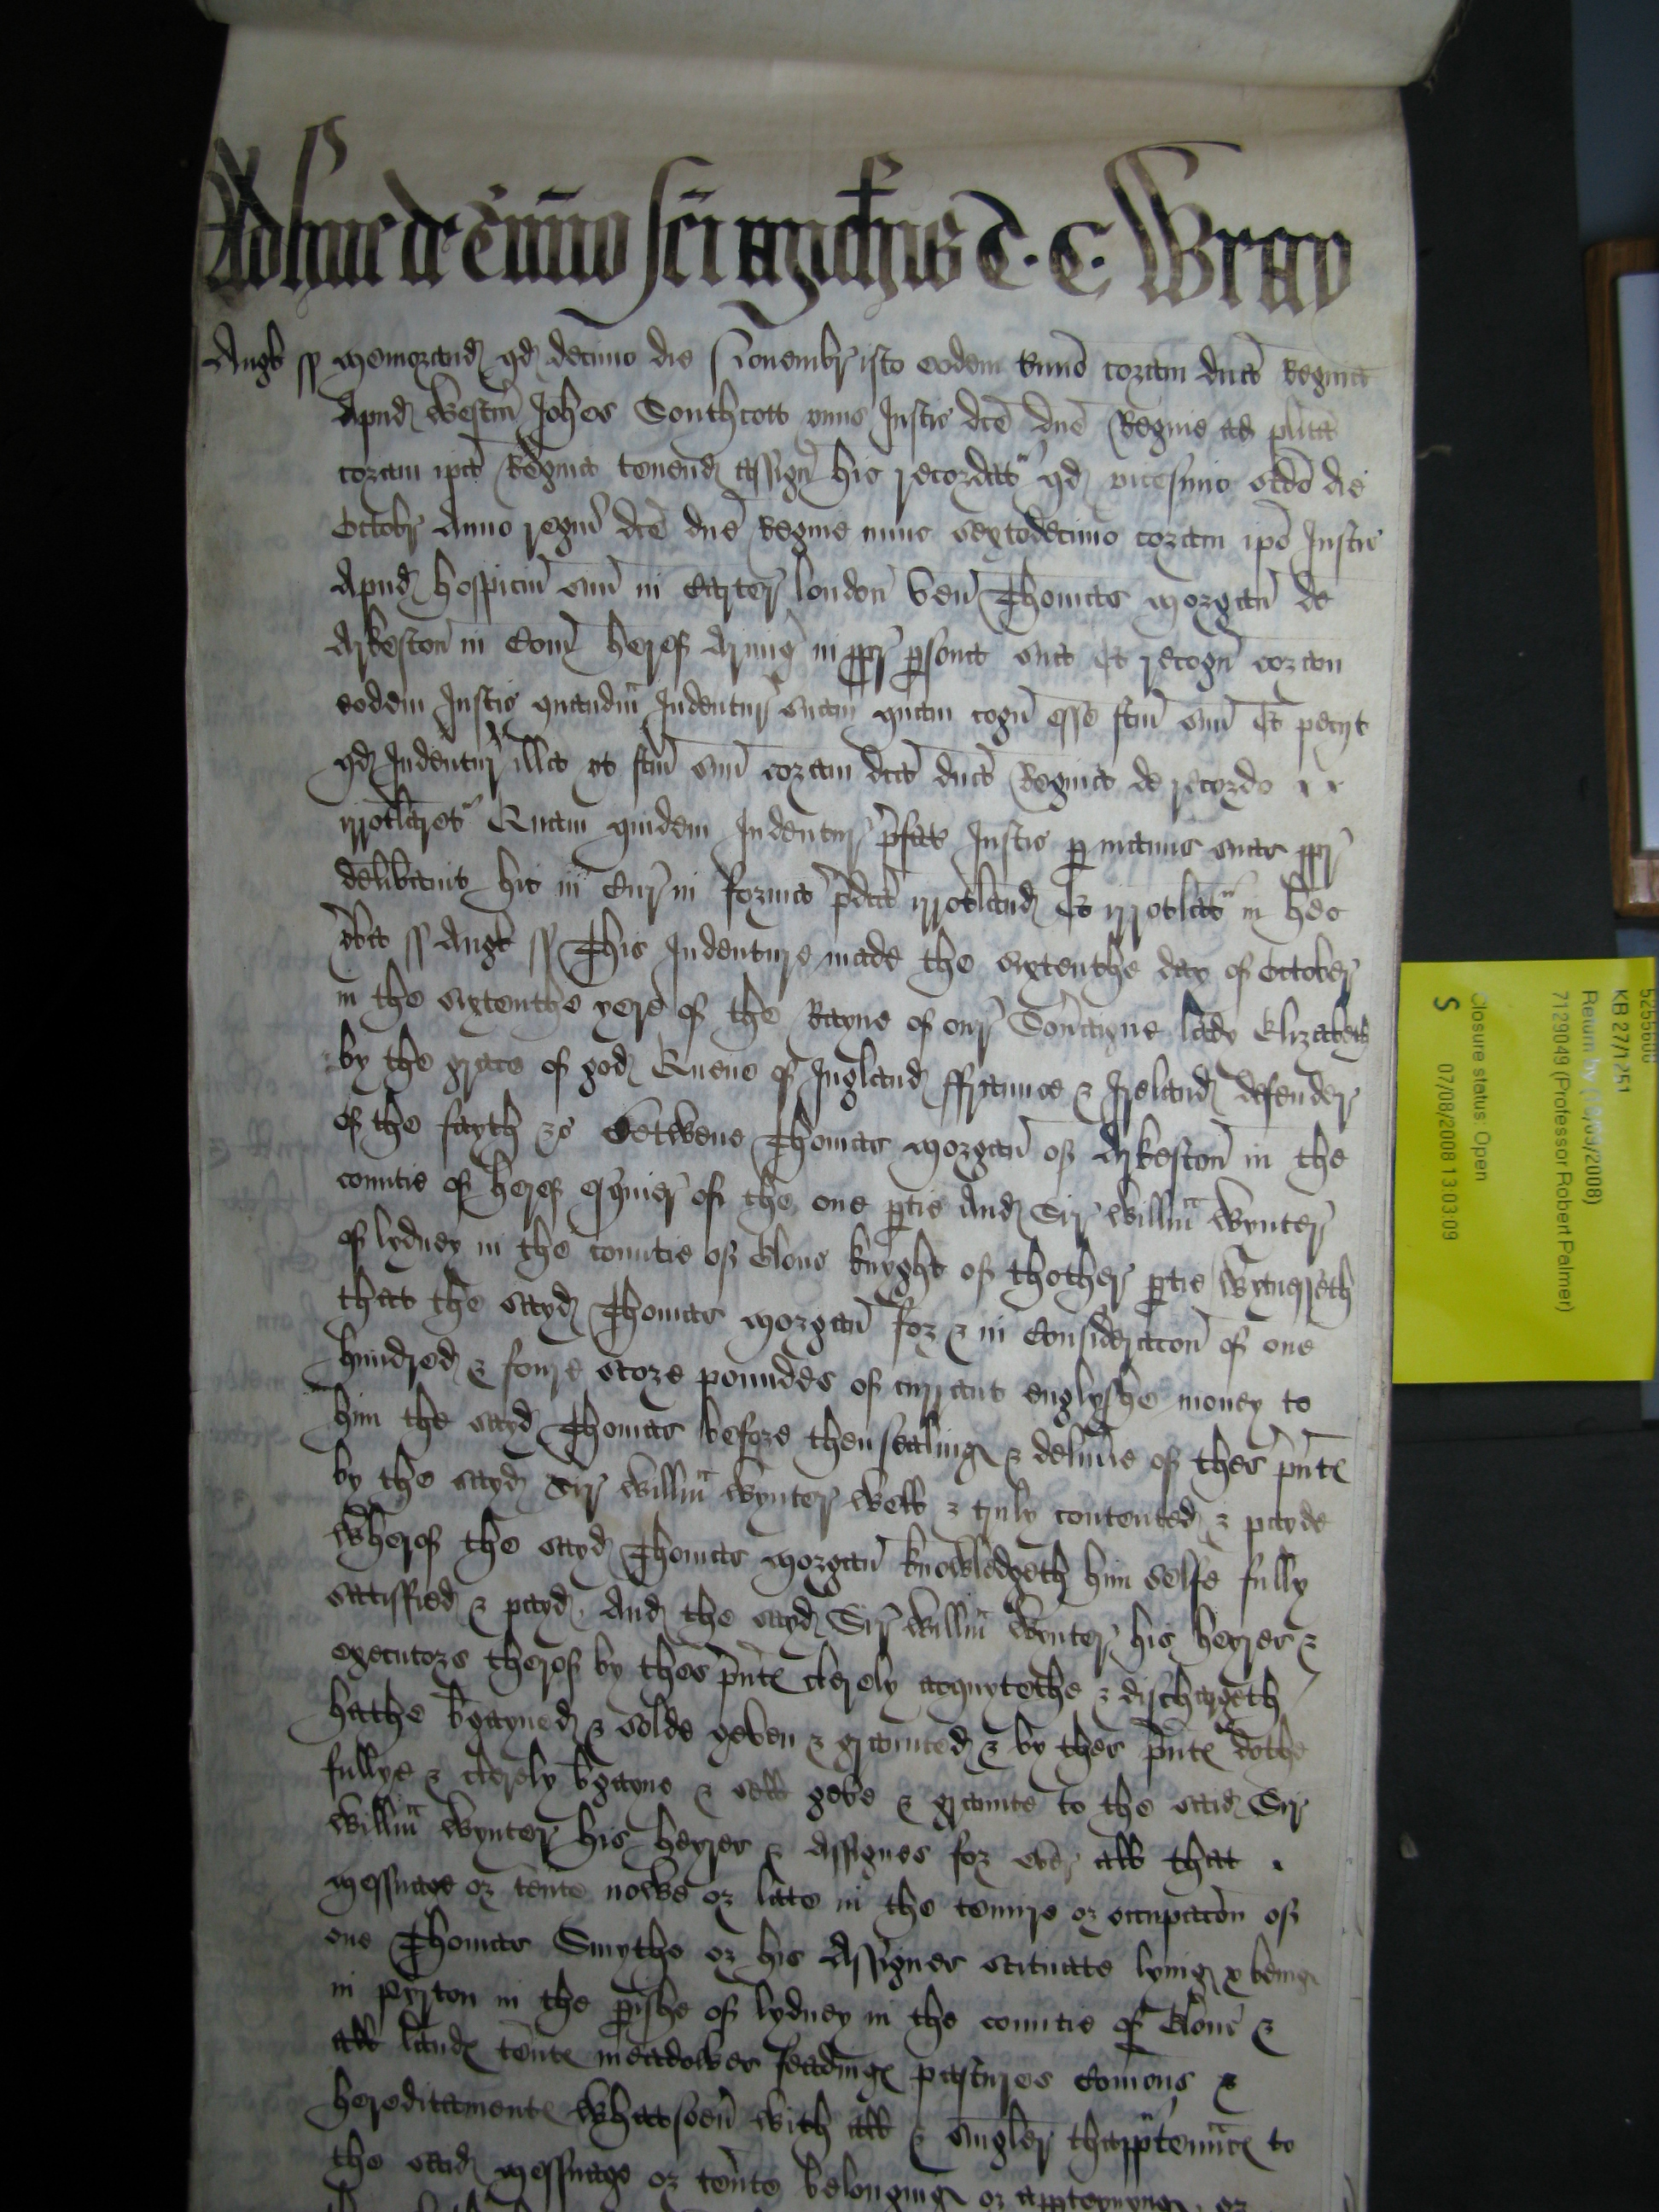 Adhuc de Tmino sci Michis T. C. Wray
Angl ss Memorand qd decimo die Novembr isto eodem Tmino coram dna Regina
Apud Westm Johes Southcott unus Justic dce dne Regine ad plita
coram ipa Regina tenend assign hic recordatr qd vicesimo scdo die
Octobr Anno regni dce dne Regine nunc sextodecimo coram ipo Justic
Apud hospiciu suu in Carter london ven Thomas Morgan de
Arkeston in Com heref Armig in ppr psona sua Et recogn coram
eodem Justic quandm Indentur suam quam cogn esse fcm suu Et petijt
qd Indentur illa ut fcm suu coram dca dna Regina de recordo
irrotlaret Quam quidem Indentur pfat Justic p manus suas ppr
delibavit hic in Cur in forma pdca irrotland Et irrotlatr in hec
vba ss Angl ss This Indenture made the sixtenthe day of October
in the sixtenthe yere of the Rayne of our Sovaigne lady Elizabeth
by the grace of god Quene of Ingland ffraunce & Ireland defender
of the fayth &c Betwene Thomas Morgan of Arkeston in the
countie of heref esquier of the one ptie And Sir Willm Wynter
of lydney in the countie of Glouc knyght of thother ptie Wytnesseth
that the sayd Thomas Morgan for & in Consideracon of one
hundred & foure score poundes of currant englyshe money to
him the sayd Thomas before then sealing & delivie of thes pnte
by the sayd Sir Willm Wynter well & truly contented & payde
Wherof the sayd Thomas Morgan knowledgeth him selfe fully
satisfied & payd And the sayd Sir Willm Wynter his heyres &
executors therof by thes pnte clerely acquytethe & dischargeth
hathe bgayned & solde geven & graunted & by thes pnte dothe
fullye & clerely bgayne & sell geve & graunte to the said Sir
Willm Wynter his heyres & Assignes for ever all that
messuage or tente nowe or late in the tenure or occupacon of
one Thomas Smythe or his Assignes scituate lying & being
in pyrton in the pishe of lydney in the countie of Glouc &
all lande tente meadowes feadinge pastures Comons &
hereditamente Whatsoev with all & singler thapptennce to
the said messuage or tente belonging or appteynyng or
5255600
KB 27/1251
Return by (18/09/2008)
7129049 (Professor Robert Palmer)
Closure status: Open
S 07/08/2008 13:03:09